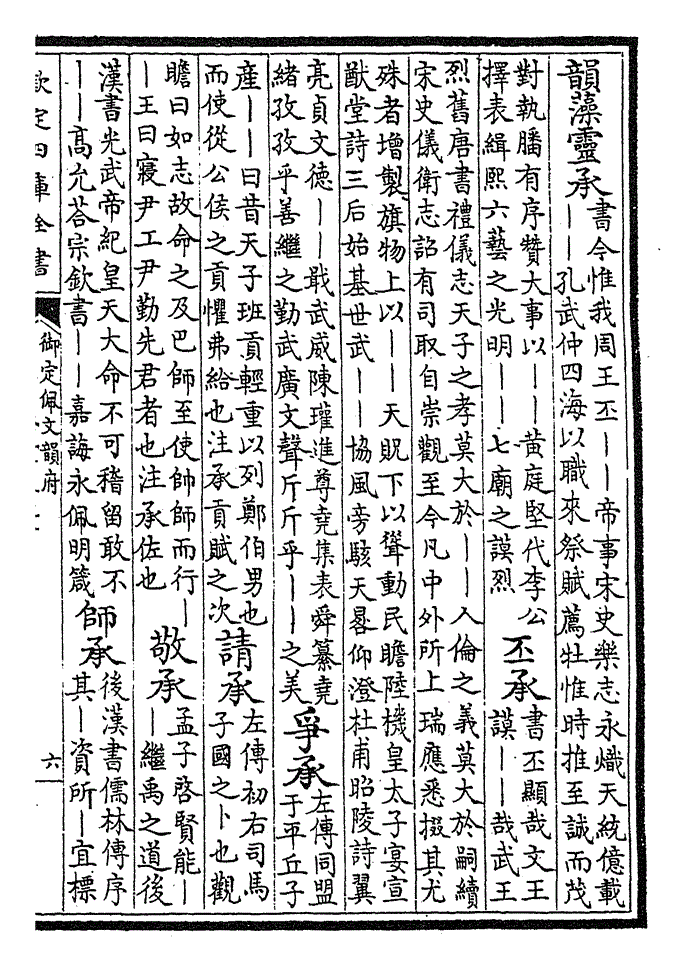 韻藻靈承
書令惟我周王丕｜｜帝事宋史樂志永熾天統億載
｜｜孔武仲四海以職來祭賦薦牡惟時推至誠而茂
對執膰有序贊大事以｜｜黄庭堅代李公
擇表緝熙六藝之光明｜｜七廟之謨烈
丕承
書丕顯哉文王
謨｜｜哉武王
烈舊唐書禮儀志天子之孝莫大於｜｜人倫之義莫大於嗣續
宋史儀衛志詔有司取自崇觀至今凡中外所上瑞應悉掇其尤
殊者增製旗物上以｜｜天貺下以聳動民瞻陸機皇太子宴宣
猷堂詩三后始基世武｜｜協風旁駭天晷仰澄杜甫昭陵詩翼
亮貞文德｜｜戢武威陳瓘進尊堯集表舜纂堯
緒孜孜乎善繼之勤武廣文聲斤斤乎｜｜之美
爭承
左傳同盟
于平丘子
產｜｜曰昔天子班貢輕重以列鄭伯男也
而使從公侯之貢懼弗給也注承貢賦之次
請承
左傳初右司馬
子國之卜也觀
瞻曰如志故命之及巴師至使帥師而行｜
｜王曰寢尹工尹勤先君者也注承佐也
敬承
孟子啓賢能｜
｜繼禹之道後
漢書光武帝紀皇天大命不可稽留敢不
｜｜高允荅宗欽書｜｜嘉誨永佩明箴
師承
後漢書儒林傳序
其｜資所｜宜標
欽定四庫全書
御定佩文韻府
六